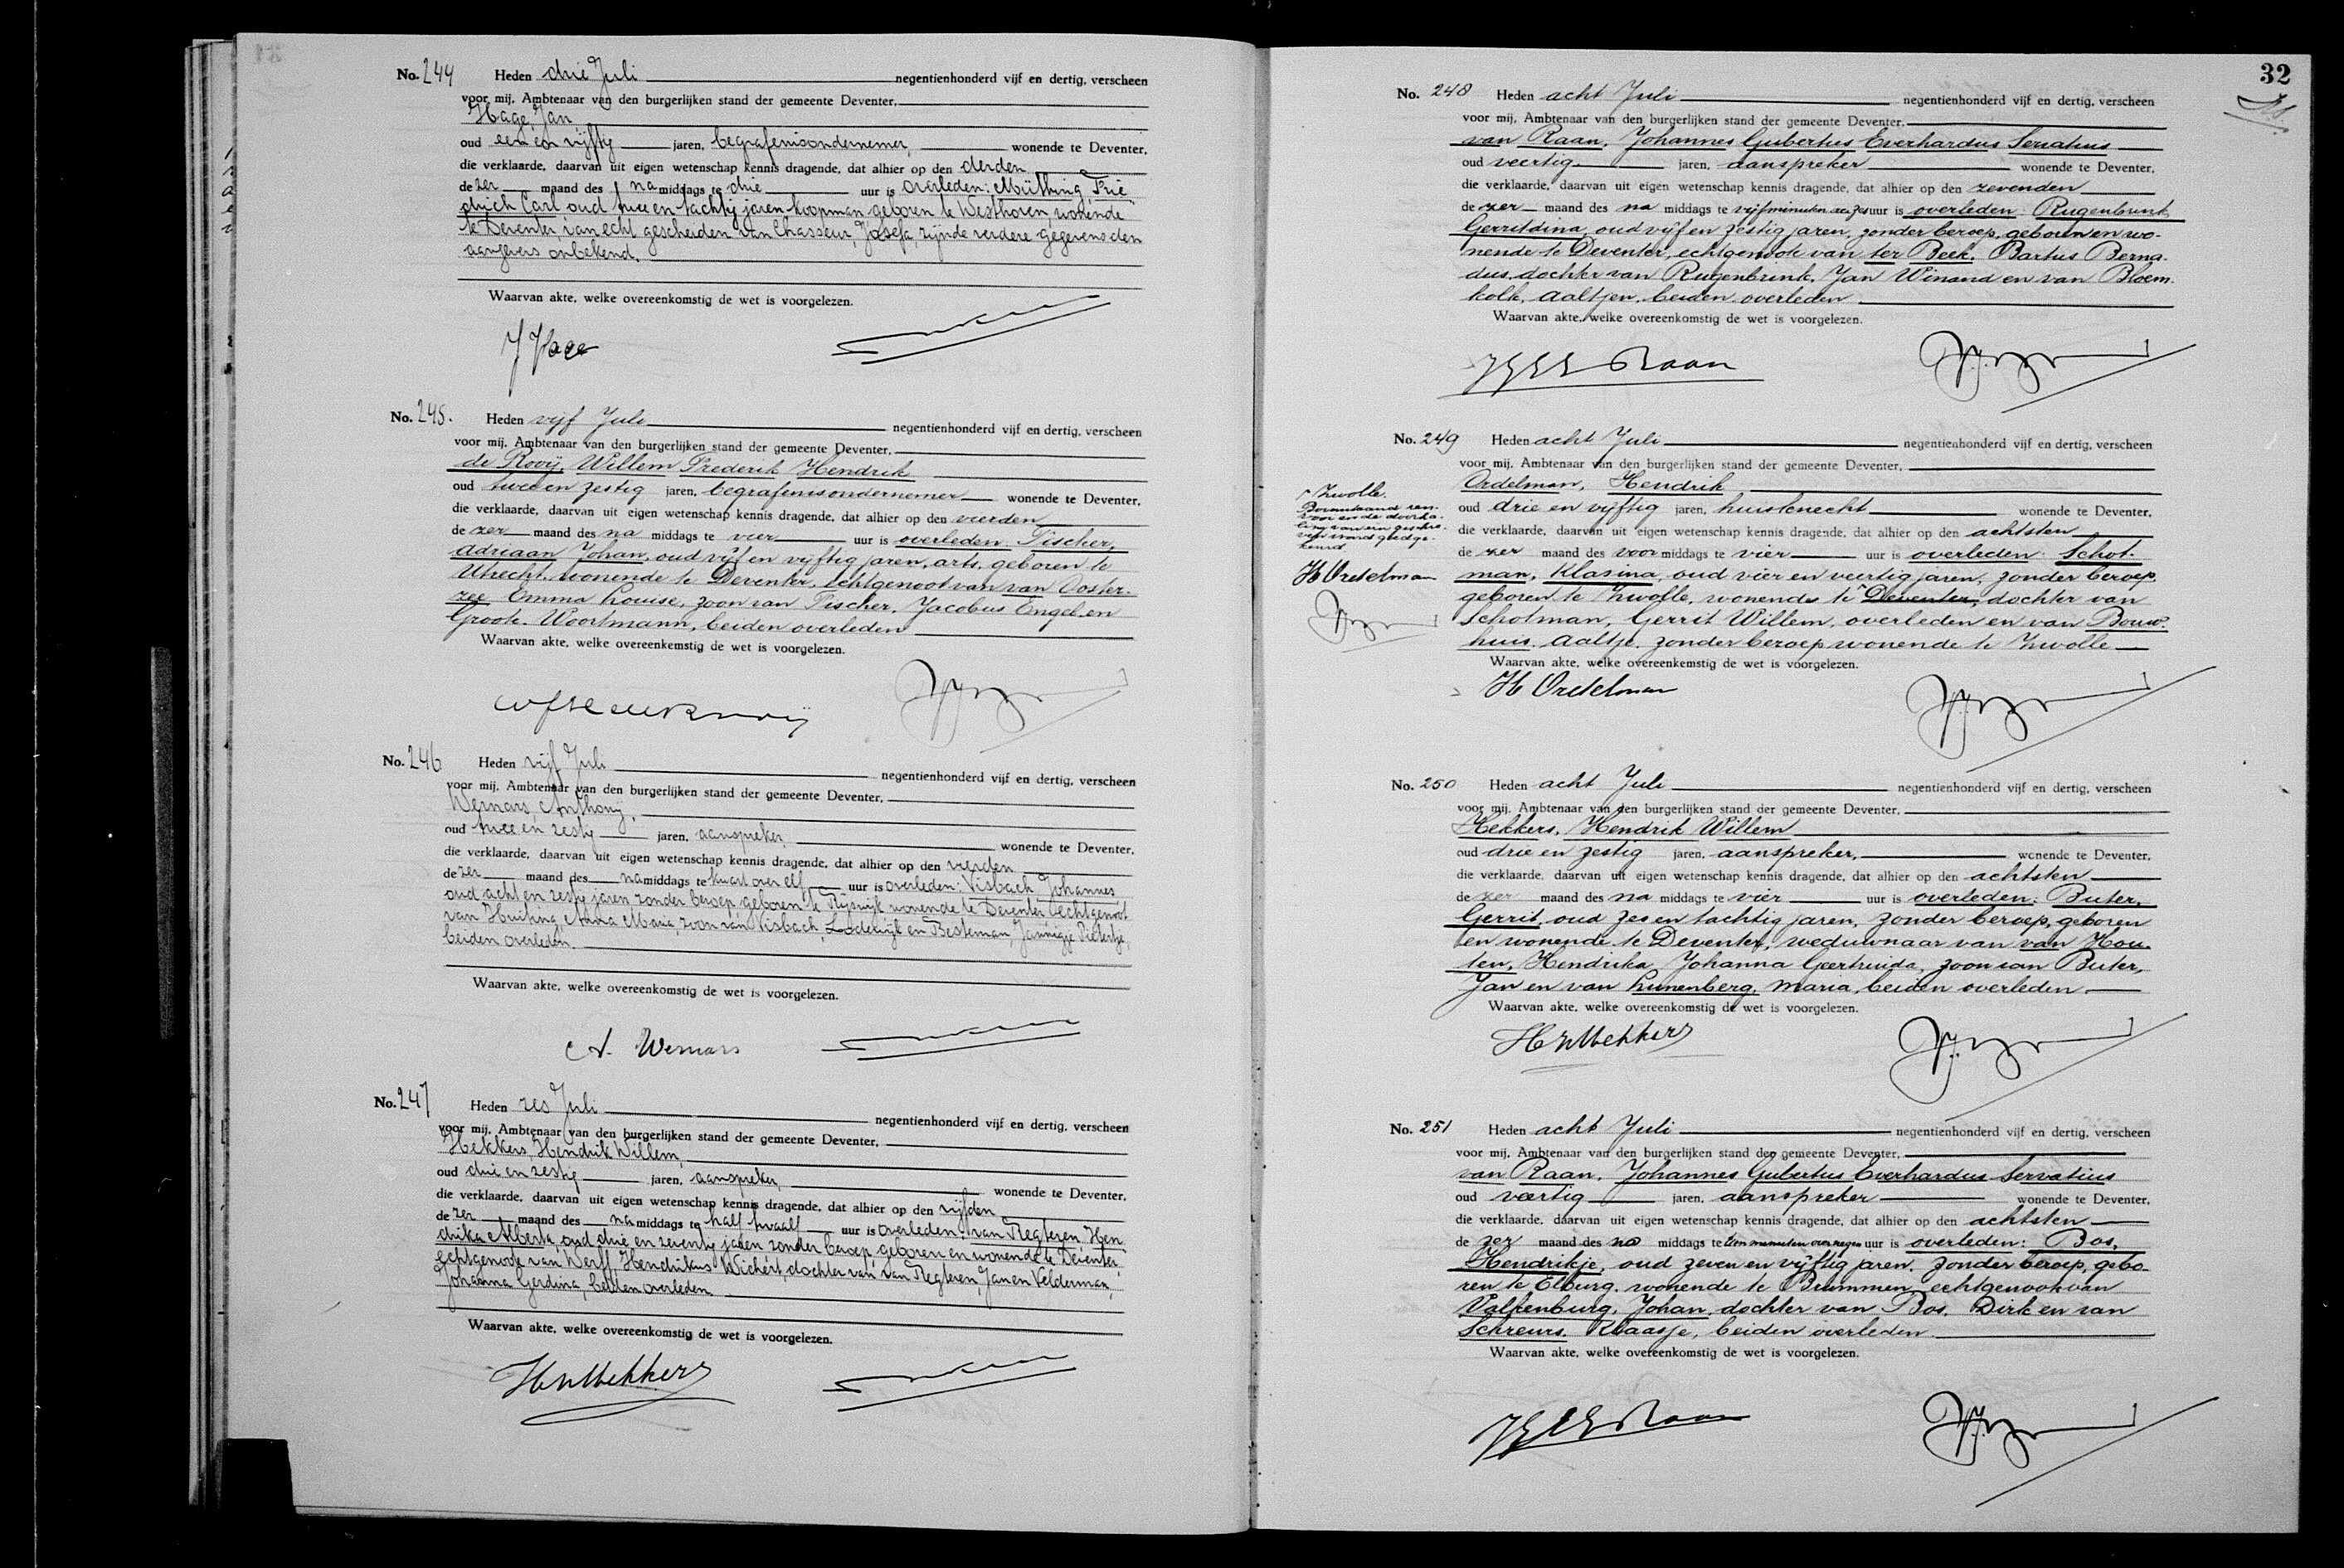 No. 244 Heden drie Juli negentienhonderd vijf en dertig, verscheen
voor mij, Ambtenaar van den burgerlijken stand der gemeente Deventer,
Hage, Jan
oud een en vijftig jaren, begrafenisondernemer, wonende te Deventer,
die verklaarde, daarvan uit eigen wetenschap kennis dragende, dat alhier op den derden
dezer maand des namiddags te drie uur is overleden: Müthing Frie
drich Carl oud twee en tachtig jaren koopman geboren te Westhoven, wonende
te Deventer, van echt gescheiden van Chasseur, Josefa, zijnde verdere gegevens den
aangever onbekend.
Waarvan akte, welke overeenkomstig de wet is voorgelezen.
J Hage
No. 245. Heden vijf Juli negentienhonderd vijf en dertig, verscheen
voor mij, Ambtenaar van den burgerlijken stand der gemeente Deventer,
de Rooij, Willem Frederik Hendrik
oud twee en zestig jaren, begrafenisondernemer wonende te Deventer,
die verklaarde, daarvan uit eigen wetenschap kennis dragende, dat alhier op den vierden
dezer maand des na middags te vier uur is overleden: Fischer,
Adriaan Johan, oud vijf en vijftig jaren, arts, geboren te
Utrecht, wonende te Deventer, echtgenoot van van Ooster-
zee Emma Louise, zoon van Fischer, Jacobus Engel en
Groote. Woortmann, beiden overleden
Waarvan akte, welke overeenkemstig de wet is voorgelezen.
No. 246 Heden vijf Juli negentienhonderd vijf en dertig, verscheen
voor mij, Ambtenaar van den burgerlijken stand der gemeente Deventer,
Wernars, Anthonij,
oud twee en zestig jaren, aanspreker, wonende te Deventer,
die verklaarde, daarvan uit eigen wetenschap kennis dragende, dat alhier op den vierden
dezer maand des namiddags te kwart over elf uur is overleden: Visbach Johannes
oud acht en zestig jaren zonder beroep geboren te Rijswijk wonende te Deventer echtgenoot
van Huiting, Anna Maria, zoon van Visbach, Lodewijk en Besteman, Jannigje Pietertje,
beiden overleden.
Waarvan akte, welke overeenkomstig de wet is voorgelezen.
A. Wernars
No. 247 Heden zes Juli negentienhonderd vijf en dertig, verscheen
voor mij, Ambtenaar van den burgerlijken stand der gemeente Deventer,
Hekkers, Hendrik Willem,
oud drie en zestig jaren, aanspreker, wonende te Deventer,
die verklaarde, daarvan uit eigen wetenschap kennis dragende, dat alhier op den vijfden
dezer maand des namiddags te half twaalf uur is overleden: van Regteren Hen
drika Alberta, oud drie en zeventig jaren zonder beroep, geboren en wonende te Deventer,
echtgenoote van Werff, Hendrikus Wichert, dochter van van Regteren, Jan en Velderman,
Johanna Gerdina, beiden overleden
Waarvan akte, welke overeenkomstig de wet is voorgelezen.
HW Hekkers
32
No. 248 Heden acht Juli negentienhonderd vijf en dertig, verscheen
voor mij, Ambtenaar van den burgerlijken stand der gemeente Deventer,
van Raan, Johannes Gubertus Everhardus Servatius
oud veertig jaren, aanspreker wonende te Deventer,
die verklaarde, daarvan uit eigen wetenschap kennis dragende, dat alhier op den zevenden
dezer maand des na middags te vijf minuten na zes uur is overleden: Rugenbrink,
Gerritdina, oud vijf en zestig jaren, zonder beroep, geboren en wo-
nende te Deventer, echtgenoote van ter Beek, Bartus Berna-
dus, dochter van Rugenbrink, Jan Winand en van Bloem-
kolk, Aaltjen, beiden overleden
Waarvan akte, welke overeenkomstig de wet is voorgelezen.
JGES v Raan
No. 249 Heden acht Juli negentienhonderd vijf en dertig, verscheen
voor mij, Ambtenaar van den burgerlijken stand der gemeente Deventer,
Ordelman, Hendrik
oud drie en vijftig jaren, huisknecht wonende te Deventer,
die verklaarde, daarvan uit eigen wetenschap kennis dragende, dat alhier op den achtsten
dezer maand des voor middags te vier uur is overleden: Schot-
man, Klasina, oud vier en veertig jaren, zonder beroep,
geboren te Zwolle, wonende te Deventer, dochter van
Schotman, Gerrit Willem, overleden en van Bouw-
huis, Aaltje, zonder beroep wonende te Zwolle
Waarvan akte, welke overeenkemstig de wet is voorgelezen.
H Ordelman
Zwolle.
Bovenstaand ren-
vooi en de doorha-
ling van een geschre-
ven woord goedge-
keurd
H Ordelman
No. 250 Heden acht Juli negentienhonderd vijf en dertig, verscheen
voor mij, Ambtenaar van den burgerlijken stand der gemeente Deventer,
Hekkers, Hendrik Willem
oud drie en zestig jaren, aanspreker, wonende te Deventer,
die verklaarde, daarvan uit eigen wetenschap kennis dragende, dat alhier op den achtsten
dezer maand des na middags te vier uur is overleden: Buter,
Gerrit, oud zes en tachtig jaren, zonder beroep, geboren
en wonende te Deventer, weduwnaar van van Hou-
ten, Hendrika Johanna Geertruida, zoon van Buter,
Jan en van Lunenberg, Maria, beiden overleden
Waarvan akte, welke overeenkomstig de wet is voorgelezen.
HW Hekkers
No. 251 Heden acht Juli negentienhonderd vijf en dertig, verscheen
voor mij, Ambtenaar van den burgerlijken stand der gemeente Deventer,
van Raan, Johannes Gubertus Everhardus Servatius
oud veertig jaren, aanspreker wonende te Deventer,
die verklaarde, daarvan uit eigen wetenschap kennis dragende, dat alhier op den achtsten
dezer maand des na middags te tien minuten over negen uur is overleden: Bos,
Hendrikje, oud zeven en vijftig jaren, zonder beroep, gebo-
ren te Elburg, wonende te Brummen, echtgenoot van
Valkenburg, Johan, dochter van Bos, Dirk en van
Schreurs, Klaasje, beiden overleden
Waarvan akte, welke overeenkomstig de wet is voorgelezen.
JGES v Raan